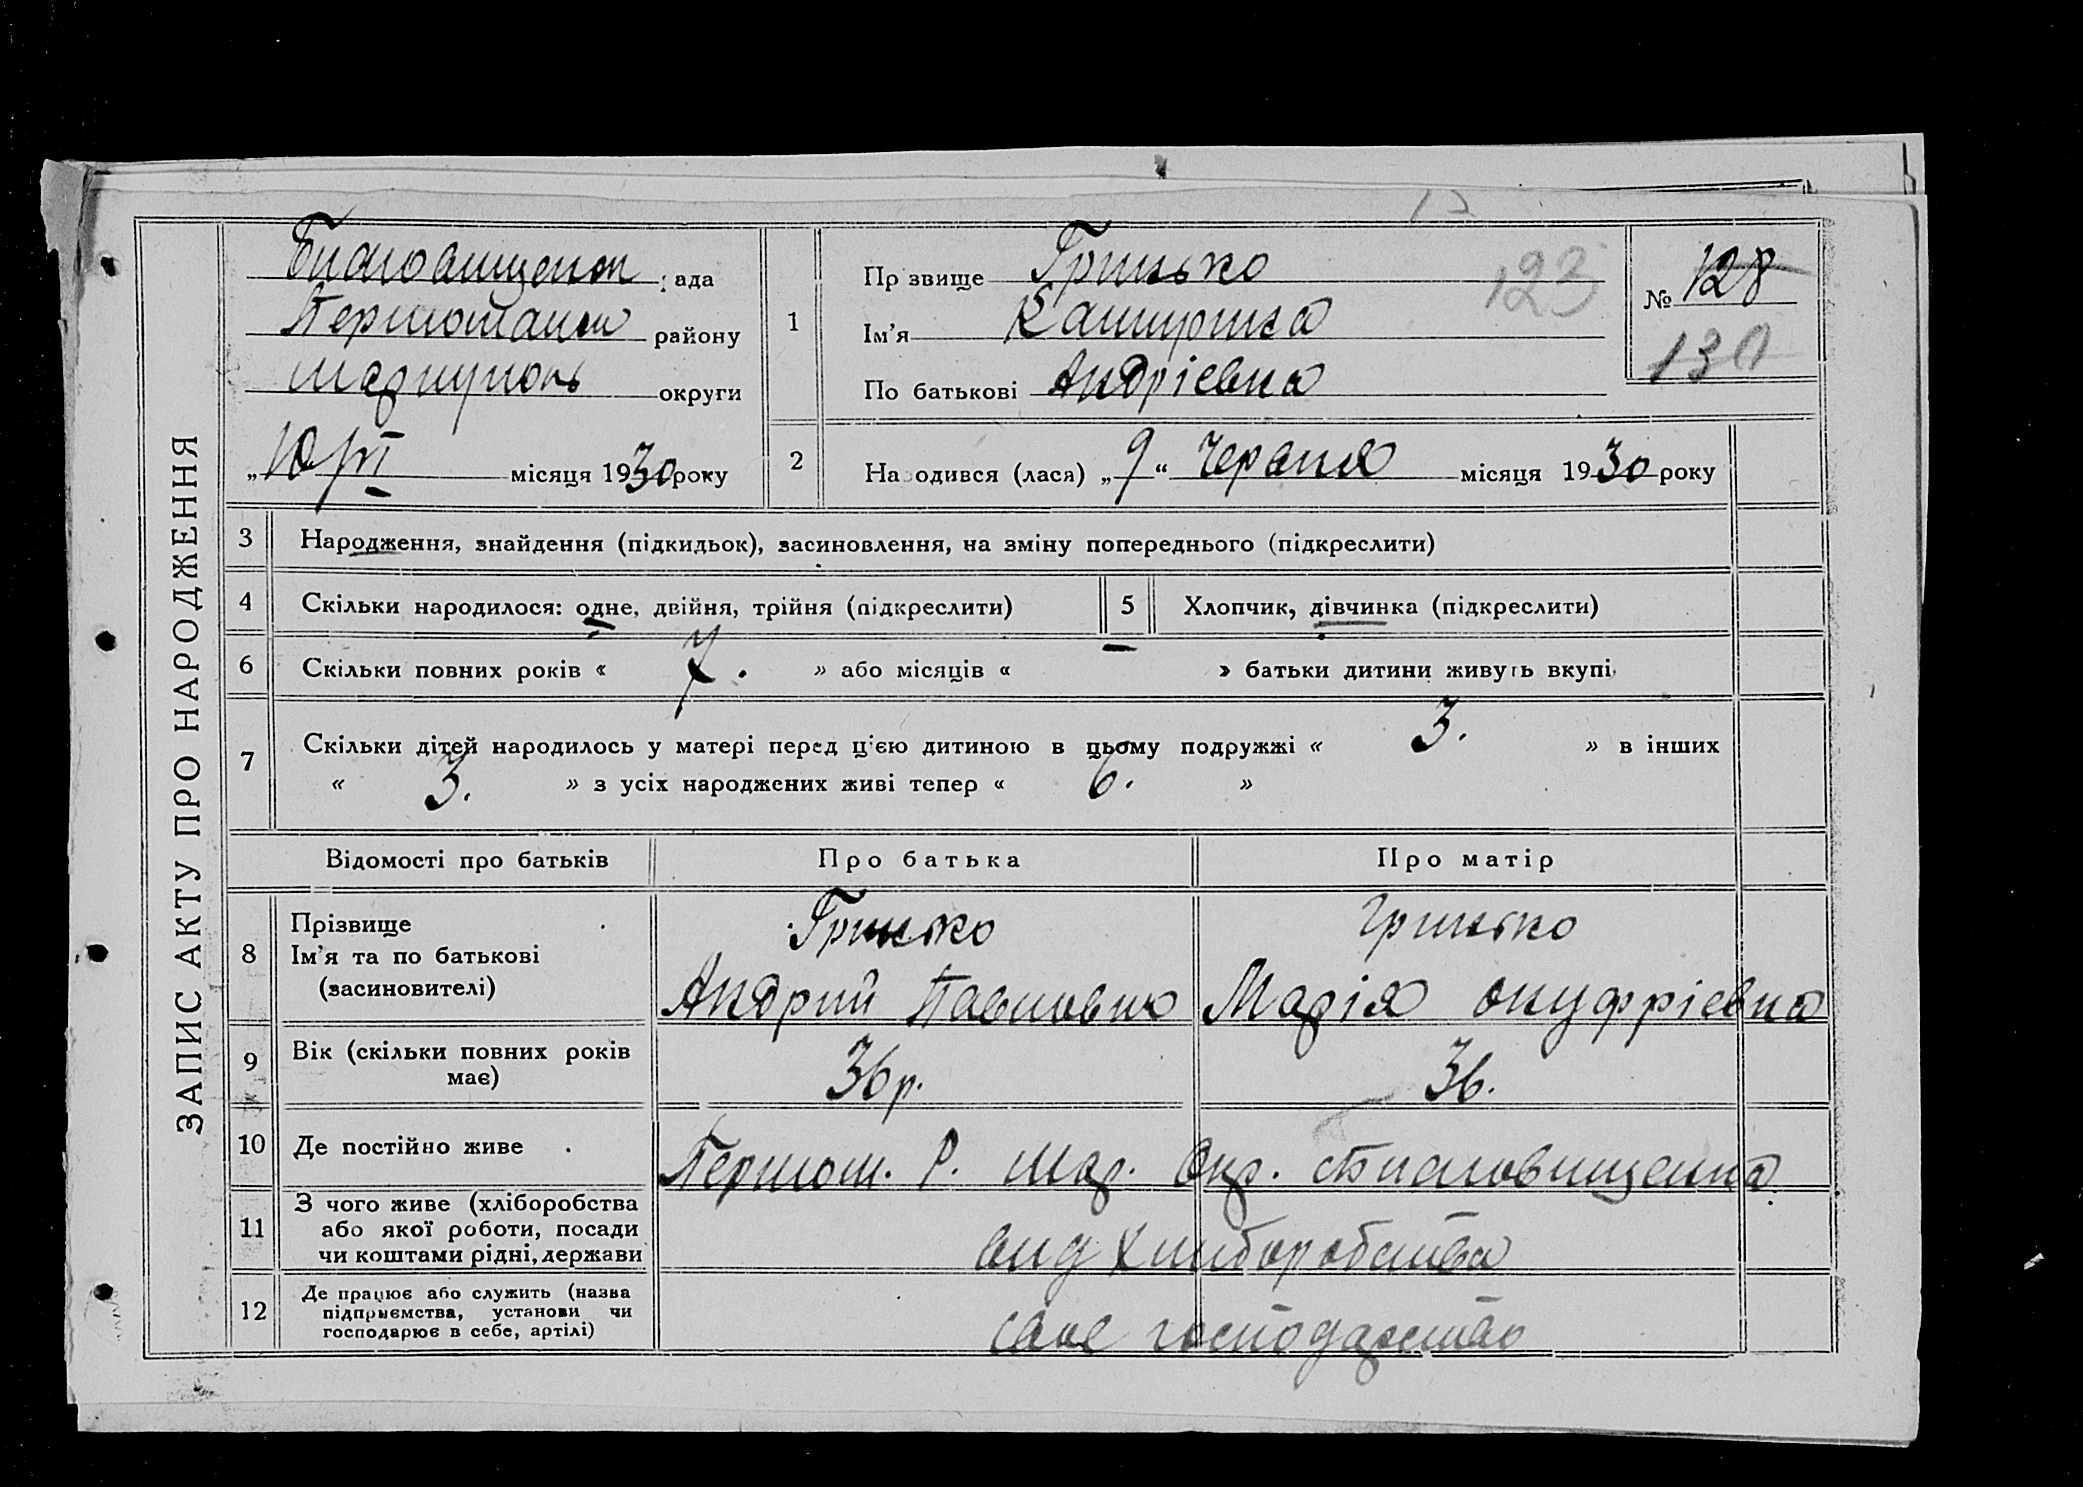 ЗАПИС АКТУ ПРО НАРОДЖЕННЯ
Благовищенск рада
Першотравн району
Маріупіль округи
„10/VI місяця 1930 року
1
Прізвище Гринько
Ім'я
По батькові Андріевна
123
№ 128
130
2
Народився (лася) „9“ червня місяця 1930 року
3 Народження, знайдення (підкидьок), засиновлення, на зміну попереднього (підкреслити)
4 Скільки народилося: одне, двійня, трійня (підкреслити) 5 Хлопчик, дівчинка (підкреслити)
6 Скільки повних років « 7. » або місяців « » батьки дитини живуть вкупі
7 Скільки дітей народилось у матері перед цією дитиною в цьому подружжі « 3. » в інших
« 3. » з усіх народжених живі тепер « 6. »
Відомості про батьків Про батька Про матір
8 Прізвище Гринько Гринько
Ім'я та по батькові
(засиновителі) Андрий Павлович Марія Онуфріевна
9 Вік (скільки повних років
має) 36 р. 36.
10 Де постійно живе Першот. Р. Мар. Окр. с Благовищенка
11 З чого живе (хліборобства
або якої роботи, посади
чи коштами рідні, держави вид Хлиборобства
12 Де працює або служить (назва
підприємства, установи чи
господарює в себе, артілі) свое господарство